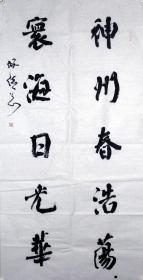 神州春浩蕩
寰海日光華